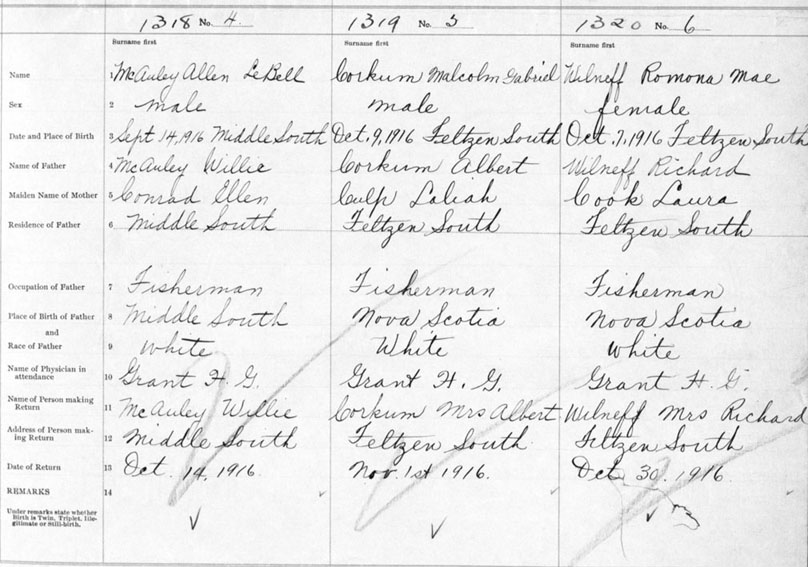 1318 No. 4. 1319 No. 5 1320 No. 6
Surname first Surname first Surname first
Name 1 McAuley Allen LeBell Corkum Malcolm Gabriel Wilneff Romona Mae
Sex 2 male male female
Date and Place of Birth 3 Sept 14, 1916 Middle South Oct. 9, 1916 Feltzen South Oct. 7, 1916 Feltzen South
Name of Father 4 McAuley Willie Corkum Albert Wilneff Richard
Maiden Name of Mother 5 Conrad Ellen Culp Laliah Cook Laura
Residence of Father 6 Middle South Feltzen South Feltzen South
Occupation of Father 7 Fisherman Fisherman Fisherman
Place of Birth of Father 8 Middle South Nova Scotia Nova Scotia
and
Race of Father 9 White White White
Name of Physician in
attendance 10 Grant H. G. Grant H. G. Grant H. G.
Name of Person making
Return 11 McAuley Willie Corkum Mrs Albert Wilneff Mrs Richard
Address of Person mak-
ing Return 12 Middle South Feltzen South Feltzen South
Date of Return 13 Oct. 14, 1916. Nov. 1st 1916. Oct. 30. 1916
REMARKS 14
Under remarks state whether
Birth is Twin, Triplet, Ille-
gitimate or Still-birth.